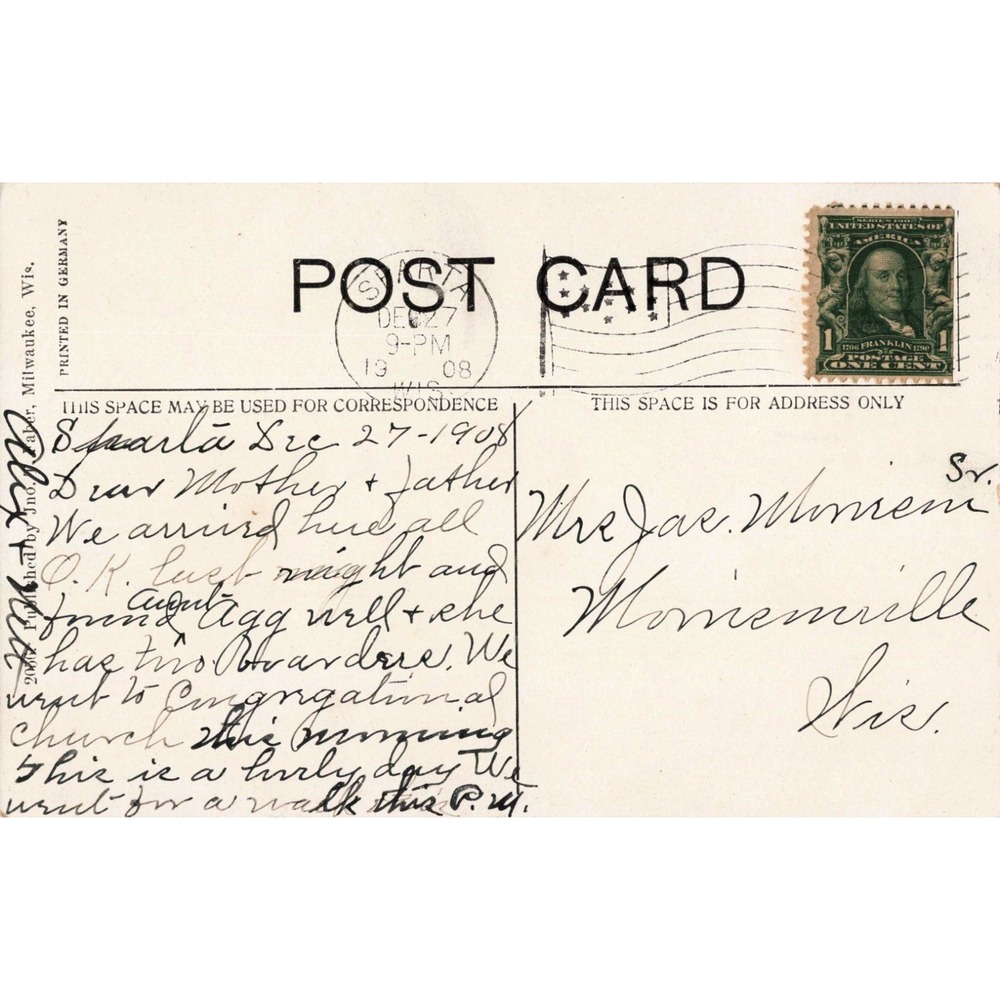 POST CARD
SPARTA
DEC 27
9-PM
1908
WIS.
SERIES 1902
UNITED STATES OF
AMERICA
1706 FRANKLIN 1790
1 1
POSTAGE
ONE CENT
PRINTED IN GERMANY
Published by Jno. Milwaukee, Wis.
THIS SPACE MAY BE USED FOR CORRESPONDENCE
THIS SPACE IS FOR ADDRESS ONLY
Sparta Dec 27-1908
Dear Mother + father
We arrived here all
O.K. last night and
found Aunt Agg well + she
has two Boarders. We
went to Congregational
church this morning
This is a lovely day We
went for a walk this P.M.
Alex +
Mrs Jas. Morrison Sr.
Morrisonville
Wis.